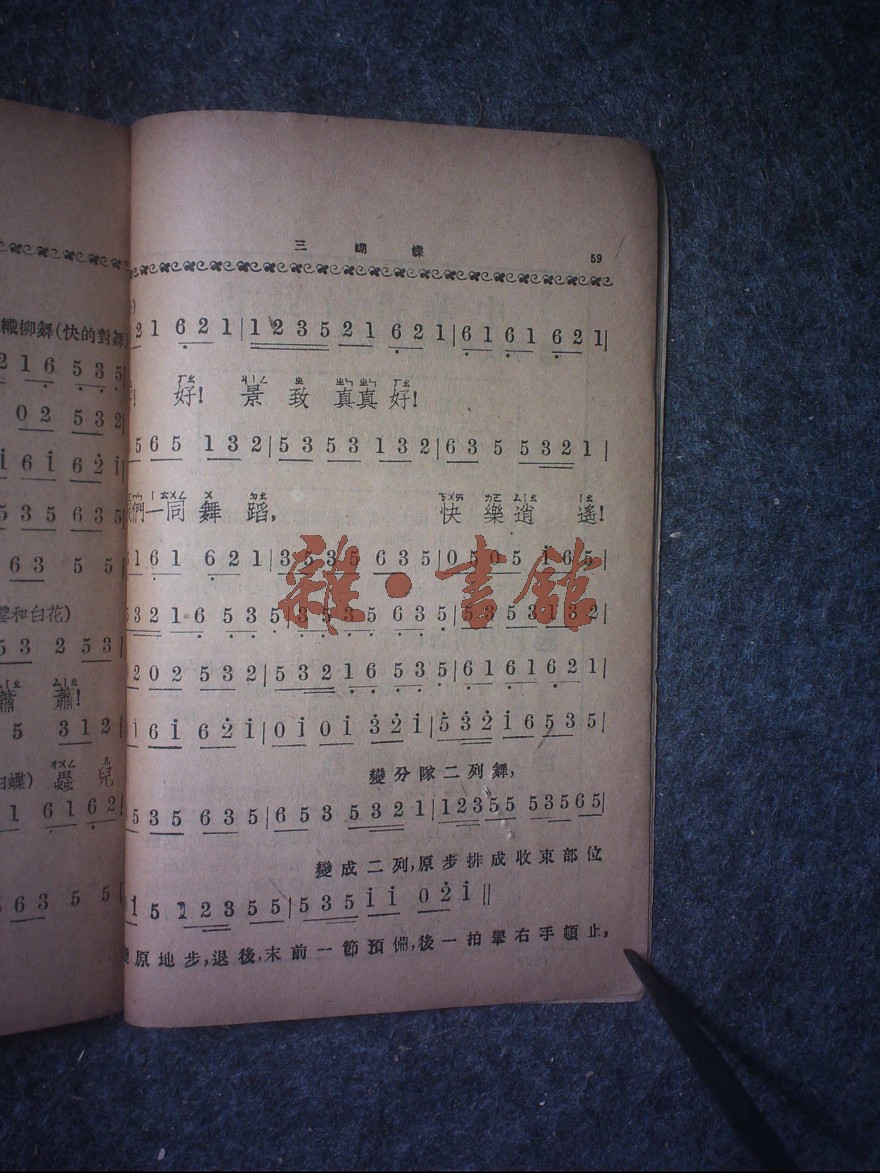 織柳舞(快的對舞)
2 1 6 5 3 5
0 2 5 3 2|
i 6 i 6 2 i|
5 3 5 6 3 5|
6 3 5 5|
雲和白花)
5 3 2 5 3|
蕭 蕭!
5 3 1 2|
白蝶) 蟲 兒
1 6 1 6 2|
6 3 5 5|
三 蝴 蝶 59
2 1 6 2 1|1 2 3 5 2 1 6 2 1|6 1 6 1 6 2 1|
ㄏㄠ ㄐㄧㄥ ㄓ ㄓㄣ ㄓㄣ ㄏㄠ
好! 景 致 真真 好!
5 6 5 1 3 2|5 3 5 3 1 3 2|6 3 5 5 3 2 1|
們一同 舞 蹈, 快 樂 逍 遙!
6 1 6 1 6 2 1|3 5 3 5 6 3 5|0 5 0 5 i 6 5|
5 3 2 1 6 5 3 5 3 5 6 3 5|5 3 5 3 1 3 2|
2 0 2 5 3 2|5 3 2 1 6 5 3 5|6 1 6 1 6 2 1|
i 6 i 6 2 i|0 i 0 i 3 2 i|5 3 2 i 6 5 3 5 5|
變 分 隊 二 列 舞,
5 3 5 6 3 5|6 5 3 5 3 2 1|1 2 3 5 5 5 3 5 6 5|
變 成 二 列, 原 步 排 成 收 束 部 位
1 5 1 2 3 5 5|5 3 5 i i 0 2 i||
原 地 步, 退 後, 末 前 一 節 預 備, 後 一 拍 舉 右 手 頓 止,
雜·書館